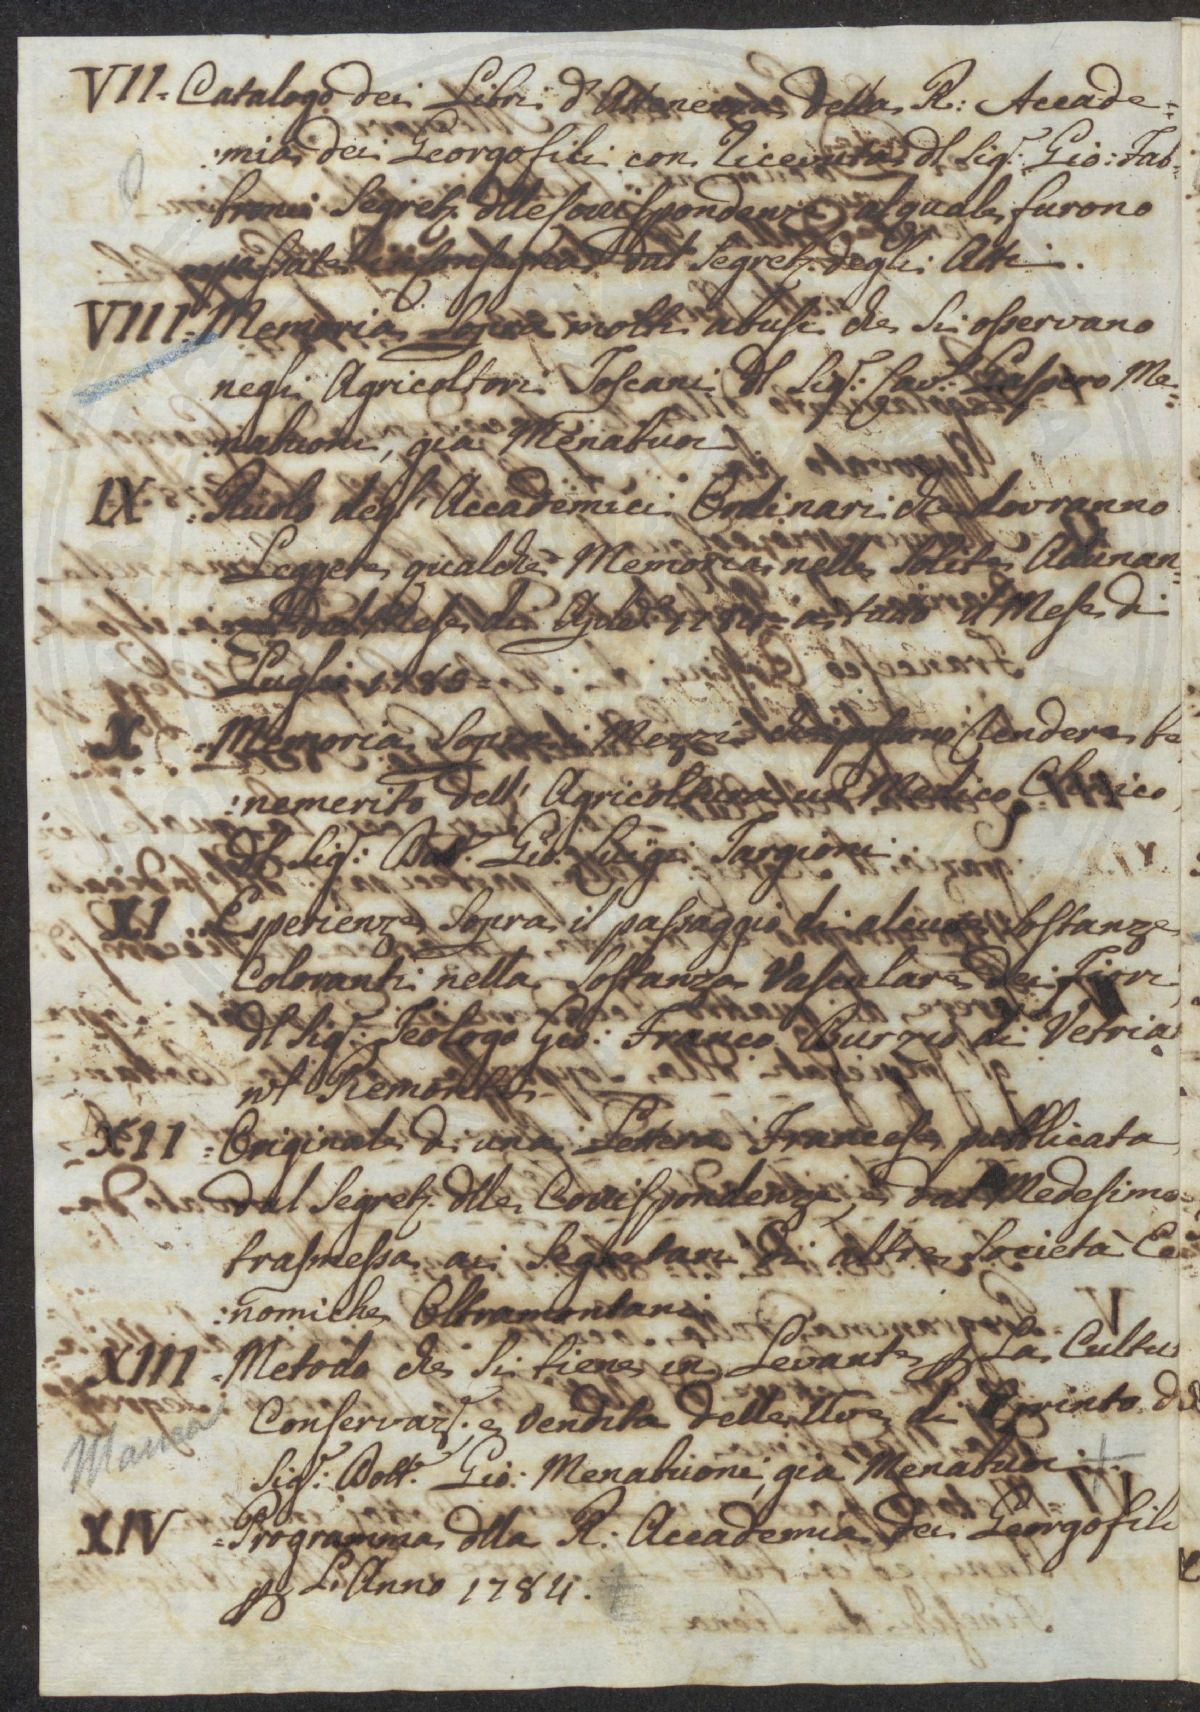 VII = Catalogo dei Libri d'Attenenza della R: Accade=
:mia dei Georgofili con ricevuta dl Sig.r Gio: Fab=
:broni Segret.o dlle Corrispondenze al quale furono
passate in consegna dal Segret.o degli Atti.
VIII = Memoria Sopra molti abusi che si osservano
negli Agricoltori Toscani dl Sig.r Cav.r Gaspero Me=
:nabuoni, già Menabuoi
IX = Ruolo degl'Accademici Ordinari che dovranno
Leggere qualche Memoria nelle solite Adunan=
dal Mese di a tutto il Mese di
Luglio 1785=
X = Memoria Sopra i Mezzi che possano rendere be
:nemerito dell'Agricoltura un Medico Clinico,
dl Sig.r Dott.r Gio. Luigi Targioni
XI = Esperienze Sopra il passaggio di alcune Sostanze
Coloranti nella Sostanza Vasculare dei
dl Sig.r Teologo Gio. Franco Burzio di Vetria
nel Piemonte
XII = Originale di una Lettera Francese pubblicata
dal Segret.o dlle Corrispondenze, e dal Medesimo
trasmessa ai Segretari di altre Società Eco
:nomiche Oltramontani
XIII = Metodo che si tiene in Levante p La Cultu
Conservaz.e, e Vendita delle Uve di Corinto d
Sig.r Dott.r Gio: Menabuoni, già Menabuoi +
Manca
XIV = Programma dlla R. Accademia dei Georgofili
p L'Anno 1784.